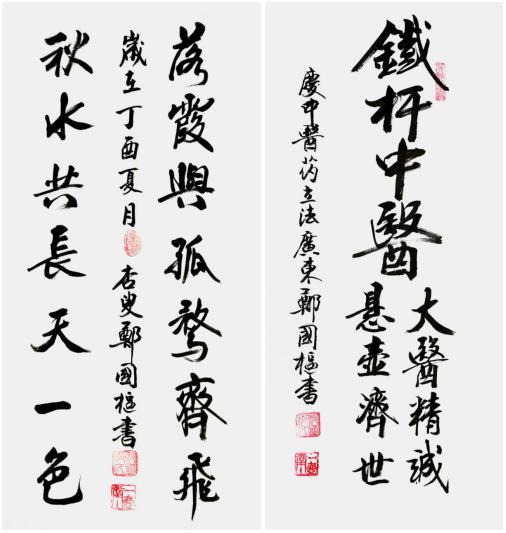 鐵杆中醫
大醫精誠
悬壺濟世
慶中醫药立法廣東鄭國樞書
落霞與孤鶩齊飛
歲在丁酉夏月 杏叟鄭國樞書
秋水共長天一色